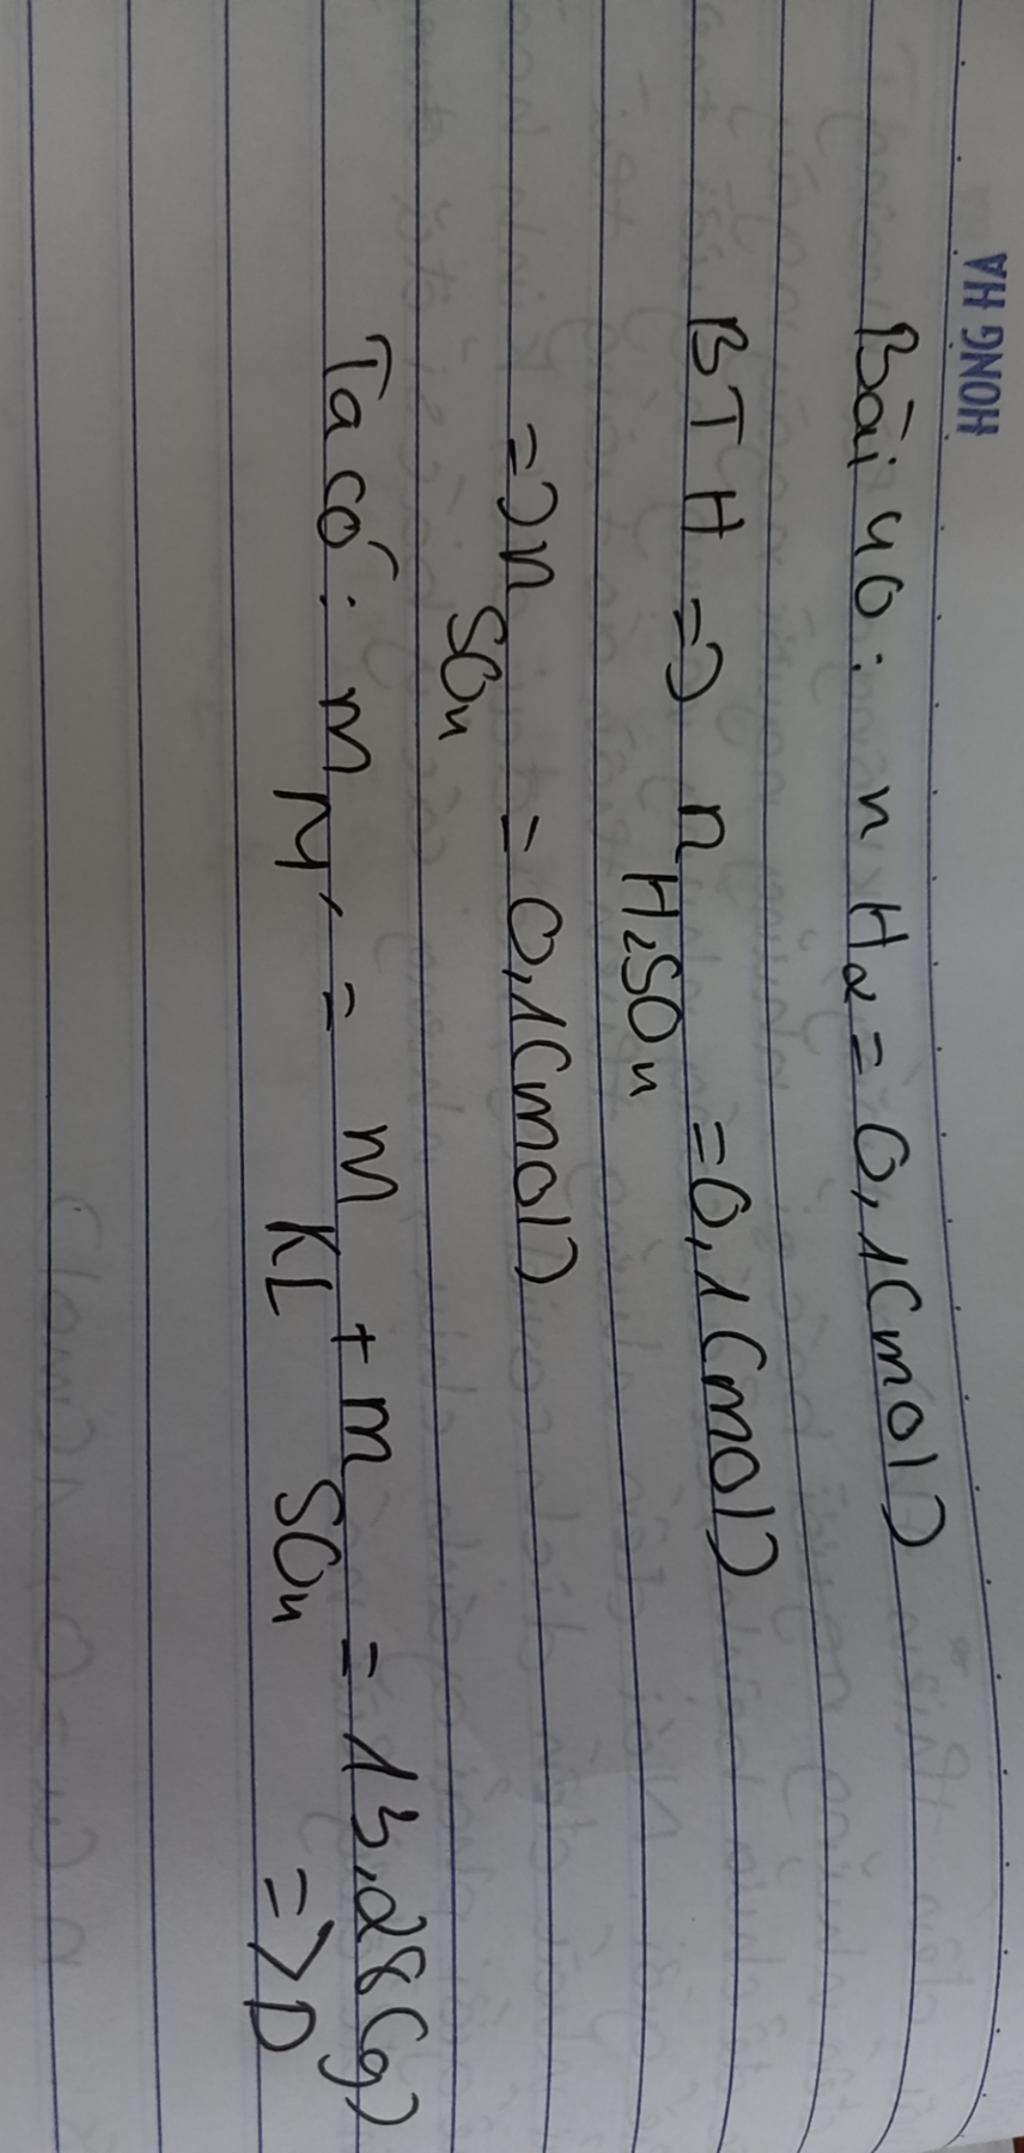 HONG HA
Bài 40: n H2 = 0,1 (mol)
BTH => n H2SO4 = 0,1 (mol)
=> n SO4 = 0,1 (mol)
Ta có: m M' = m KL + m SO4 = 13,28 (g)
=> D